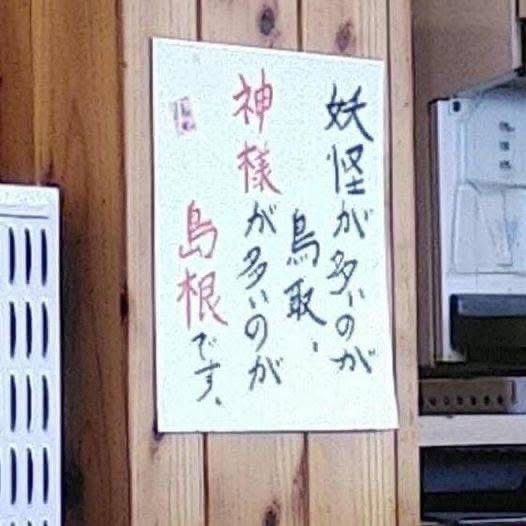 妖怪が多いのが
鳥取、
神様が多いのが
島根です。